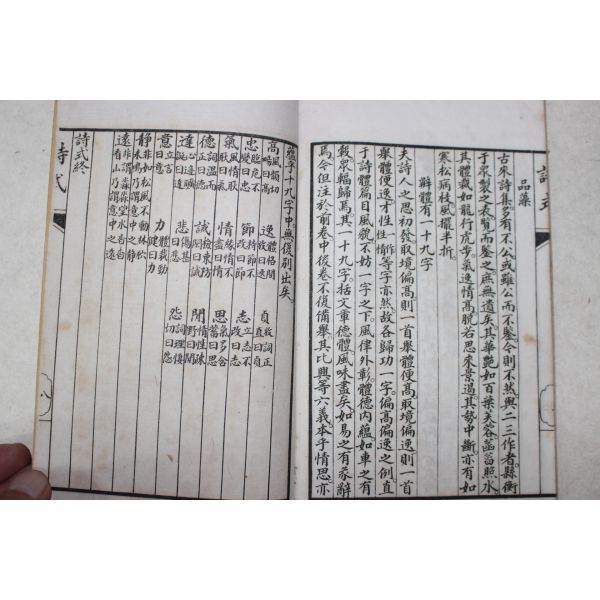 詩式
品藻
古來詩集多有不公或雖公而不鑒今則不然與二三作者縣衡
于衆製之表覽而鑒之庶無遺矣其華艷如百葉芙蓉菡萏照水
其體裁如龍行虎步氣逸情高脫若思來景遏其勢中斷亦有如
寒松病枝風擺半折
辯體有一十九字
夫詩人之思初發取境偏高則一首舉體便高取境偏逸則一首
舉體便逸才性情性等字亦然故各歸功一字偏高偏逸之例直
於詩體篇目風貌不妨一字之下風律外彰體德內蘊如車之有
轂衆輻歸焉其一十九字括文章德體風味盡矣如易之有彖辭
焉今但注於前卷中後卷不復備舉其比興等六義本乎情思亦
蘊乎十九字中無復別出矣
高風韻切暢曰高 逸體格閒放曰逸 貞放詞正直曰貞
忠臨危不變曰忠 節持節不改曰節 志立志不改曰志
氣風情耿耿曰氣 情緣情不盡曰情 思氣多含蓄曰思
德詞溫而正曰德 誡檢束防閑曰誡 閒情性疎野曰閒
達心迹曠誕曰達 悲傷甚曰悲 怨詞理悽切曰怨
意立言曰意 力體裁勁健曰力
靜非如松風不動林狖未鳴乃謂意中之靜
遠非謂淼淼望水杳杳看山乃謂意中之遠
詩式終
詩式
八